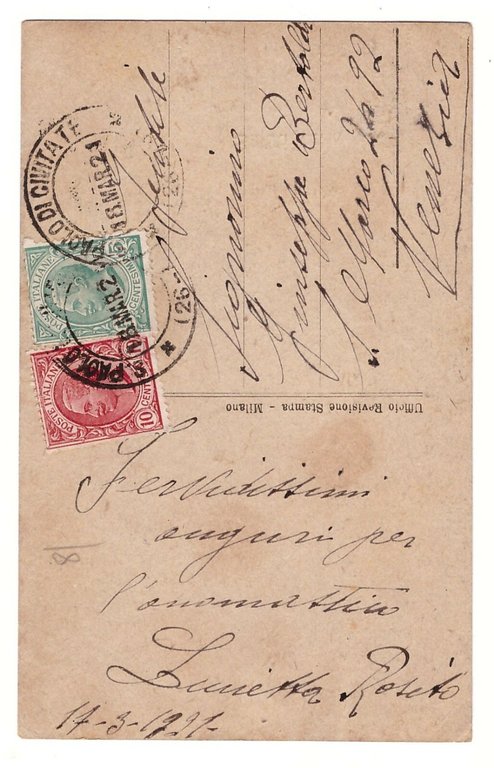 S. PAOLO DI CIVITATE
18 MAR. 21
POSTE ITALIANE
CENTESIMI
S. PAOLO
18 MAR. 2
(26-
POSTE ITALIANE
10 CENT
Signorino
Giuseppe Bertoldi
S. Marco 2492
Venezia
Ufficio Revisione Stampa - Milano
Fervidissimi
auguri per
l'onomastico
Lucietta Rosito
17-3-1921-
18